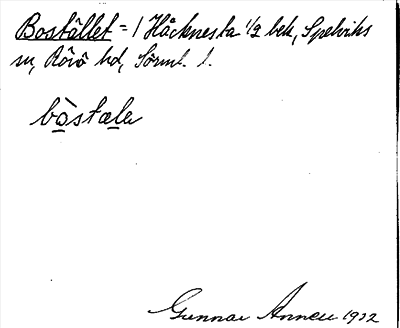 Bostället = 1 Håcknesta 1/2 bek, Spelviks
sn, Rönö hd, Sörml. l.
bòstælə
Gunnar Annell 1932